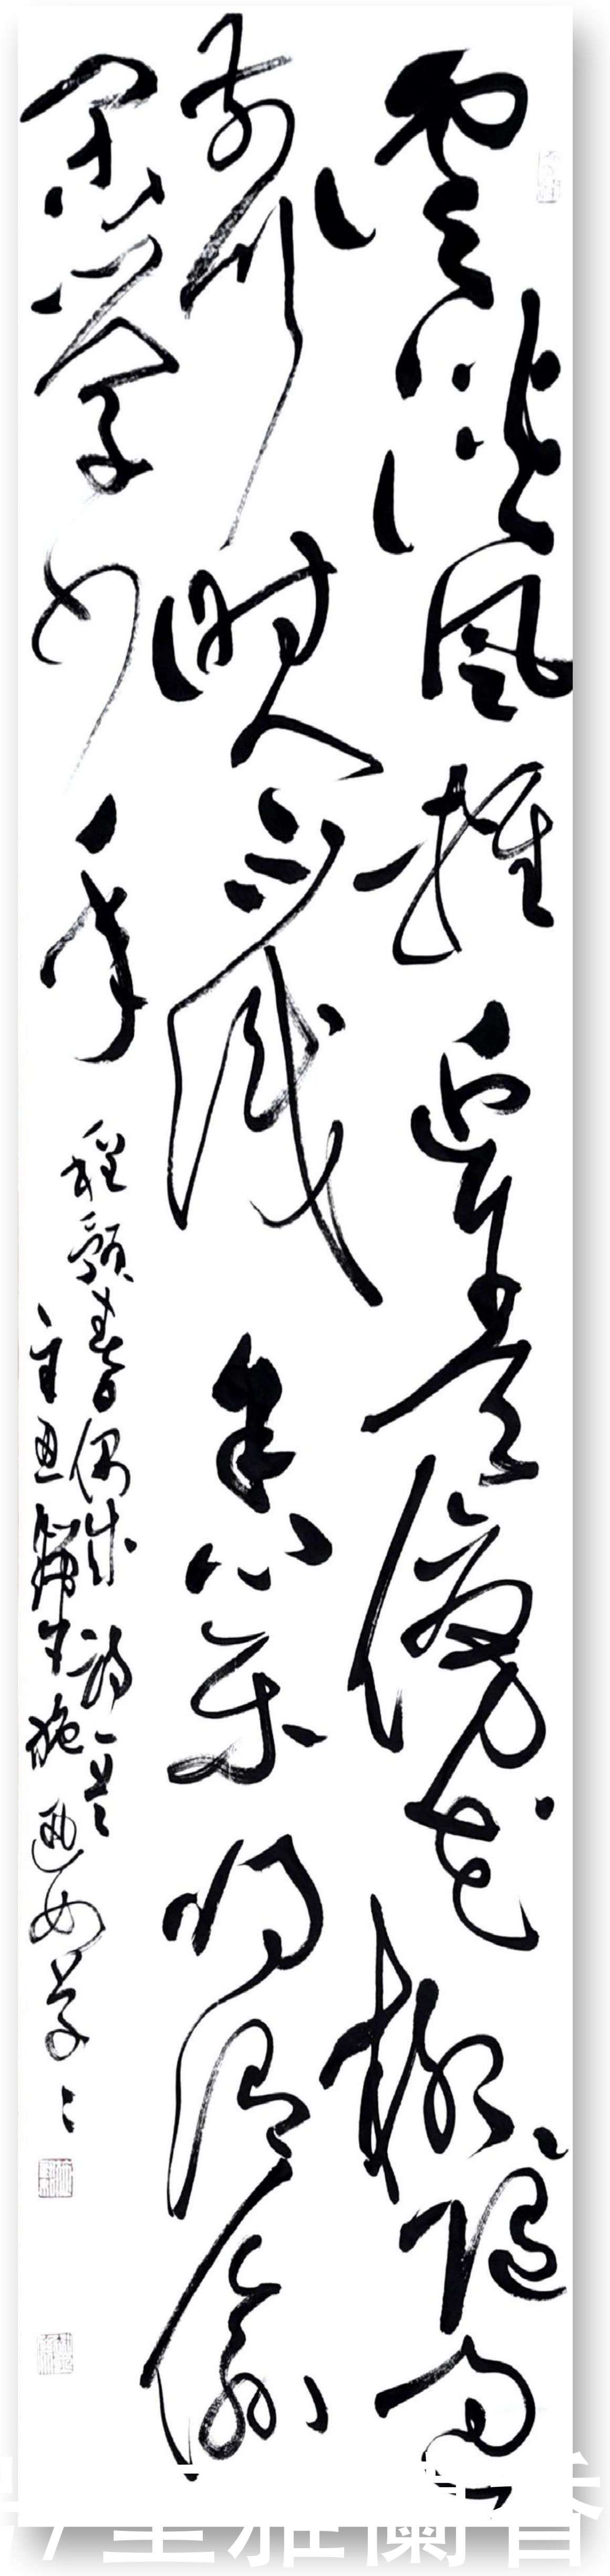 雲淡風輕近午天傍花柳隨過
前川時人不識余心樂將謂偷
閒學少年
程顥春日偶成詩一首
室雅蘭香